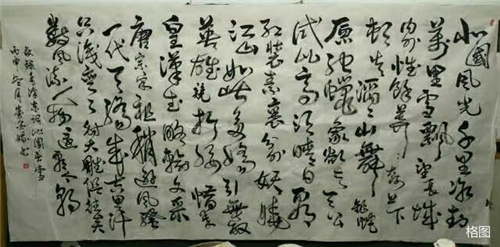 北國風光千里冰封
萬里雪飄望長城
内外惟餘莽莽大河上下
頓失滔滔山舞銀蛇
原馳蠟象欲与天公
試比高須晴日看
紅裝素裹分外妖嬈
江山如此多嬌引無數
英雄競折腰惜秦
皇漢武略輸文采
唐宗宋祖稍遜風騷
一代天驕成吉思汗
只識彎弓射大雕俱往矣
數風流人物還看今朝
敬錄毛澤東詞沁園春雪
丙申冬月
格图